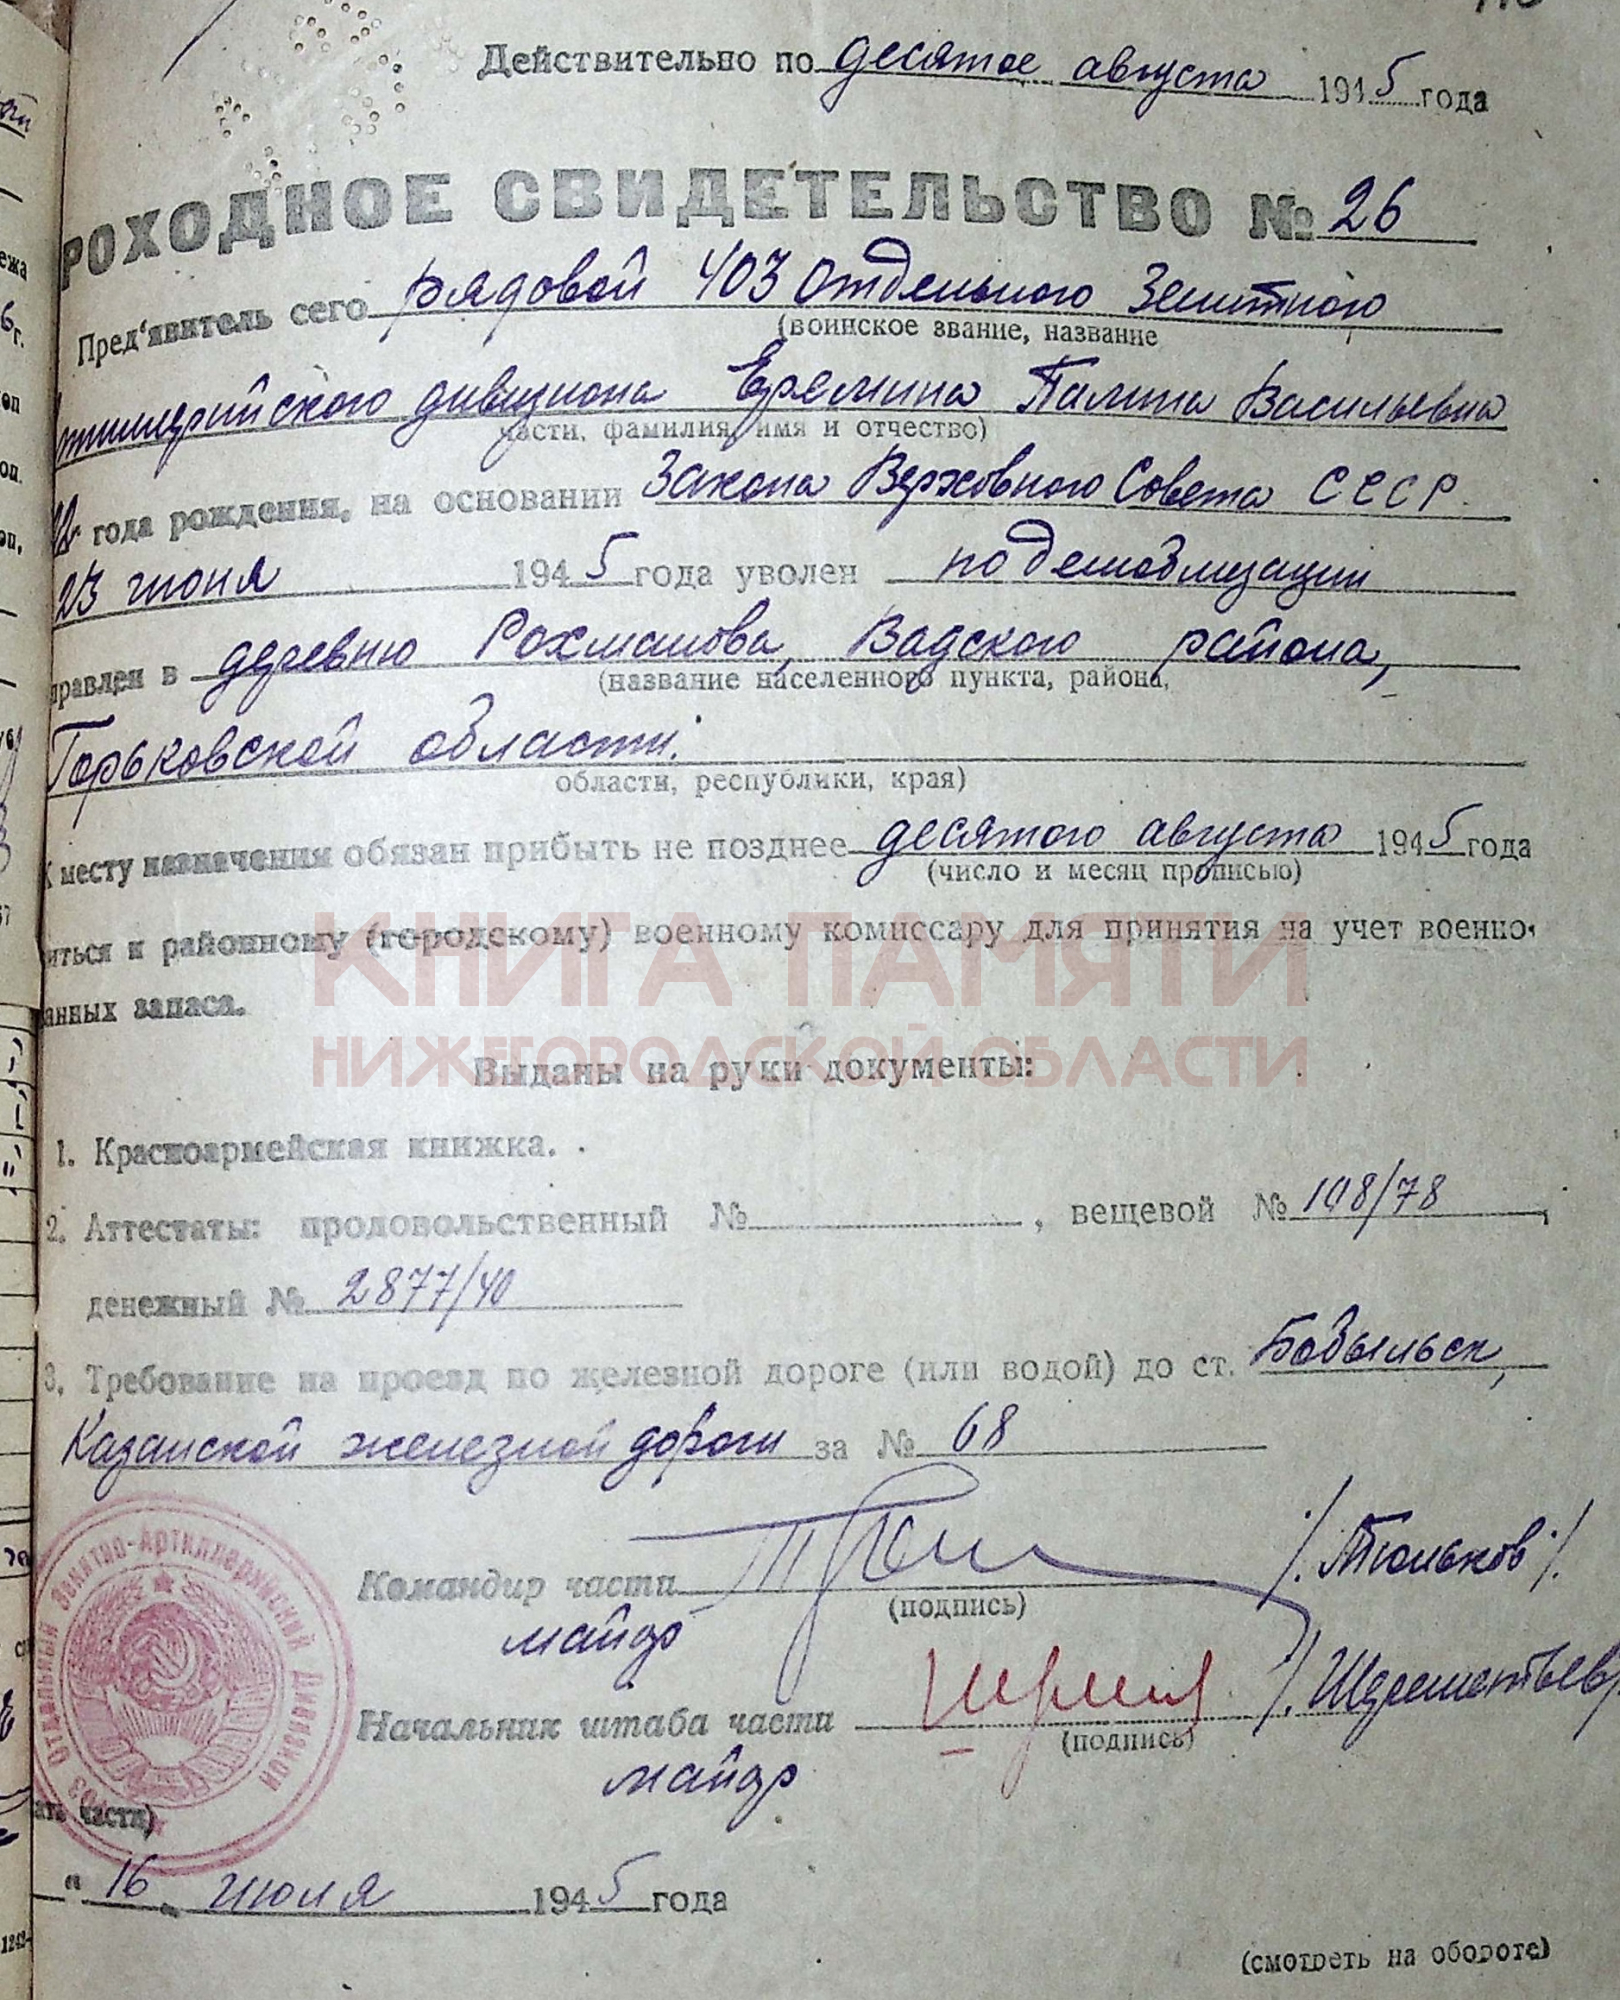 Действительно по десятое августа 1945 года
РОХОДНОЕ СВИДЕТЕЛЬСТВО № 26
Пред'явитель сего рядовой 403 Отдельного Зенитного
(воинское звание, название
тиллерийского дивизиона Еремина Галина Васильевна
части, фамилия, имя и отчество)
года рождения, на основании Закона Верховного Совета СССР
23 июня 1945 года уволен по демобилизации
правлен в деревню Рохманова, Вадского района,
(название населенного пункта, района,
Горьковской области.
области, республики, края)
К месту назначения обязан прибыть не позднее десятого августа 1945 года
(число и месяц прописью)
иться к районному (городскому) военному комиссару для принятия на учет военно-
анных запаса.
КНИГА ПАМЯТИ
НИЖЕГОРОДСКОЙ ОБЛАСТИ
Выданы на руки документы:
1. Красноармейская книжка.
2. Аттестаты: продовольственный № , вещевой № 108/78,
денежный № 2877/40
3. Требование на проезд по железной дороге (или водой) до ст. Бобыльск,
Казанской железной дороги за № 68
Командир части /Тюльков/.
(подпись)
майор
Начальник штаба части /Шереметьев
(подпись)
майор
Отдельный Зенитно-Артиллерийский Дивизион
ать части)
"16" июля 1945 года
(смотреть на обороте)